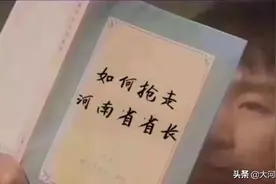 如何抢走
河南省省长
头条 @大河